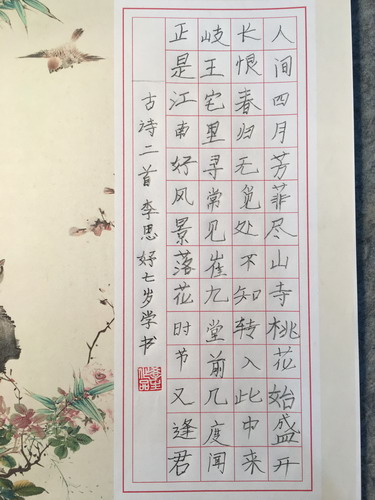 人间四月芳菲尽山寺桃花始盛开
长恨春归无觅处不知转入此中来
岐王宅里寻常见崔九堂前几度闻
正是江南好风景落花时节又逢君
古诗二首李思妤七岁学书